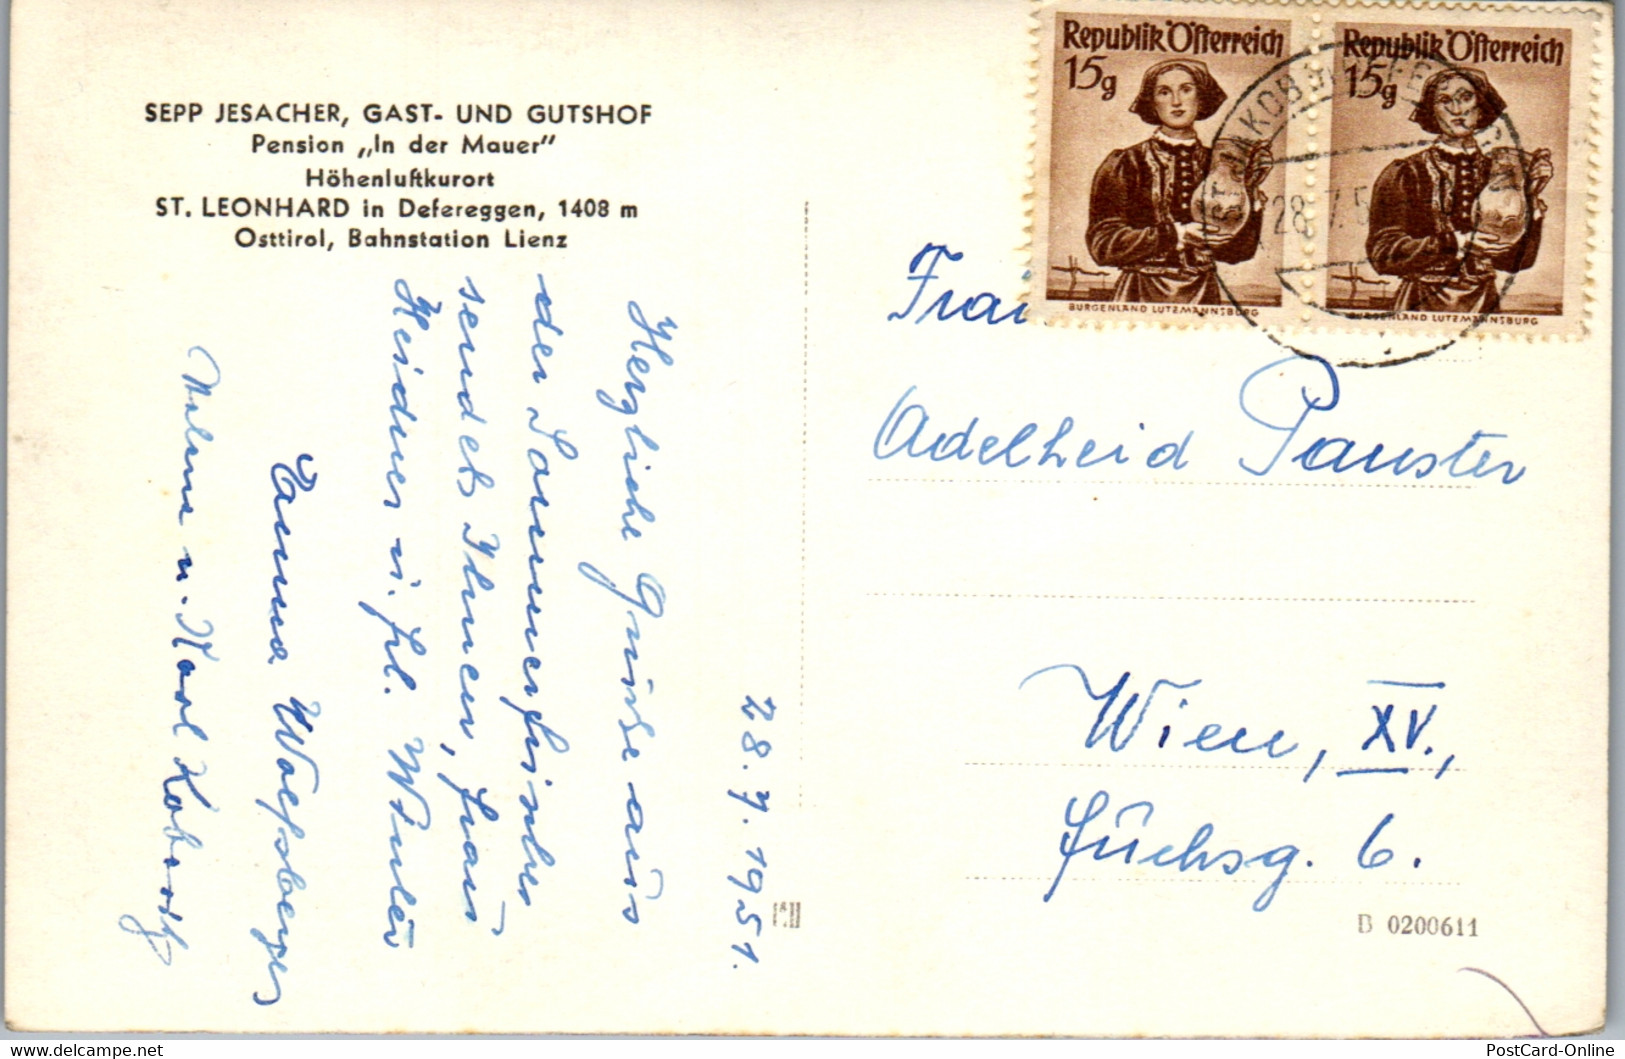 SEPP JESACHER, GAST- UND GUTSHOF
Pension „In der Mauer"
Höhenluftkurort
ST. LEONHARD in Defereggen, 1408 m
Osttirol, Bahnstation Lienz
Republik Österreich
15g
BURGENLAND LUTZMANNSBURG
Republik Österreich
15g
BURGENLAND LUTZMANNSBURG
ST. JAKOB IN DEFEREGGEN
28.7.5
28. 7. 1951.
Herzliche Grüße aus
der Sommerfrische
sendet Ihnen, Frau
Heidner u. Frl. Winter
Karl
Frau
Adelheid Pauster
Wien, XV.,
Fuchsg. 6.
B 0200611
PostCard-Online